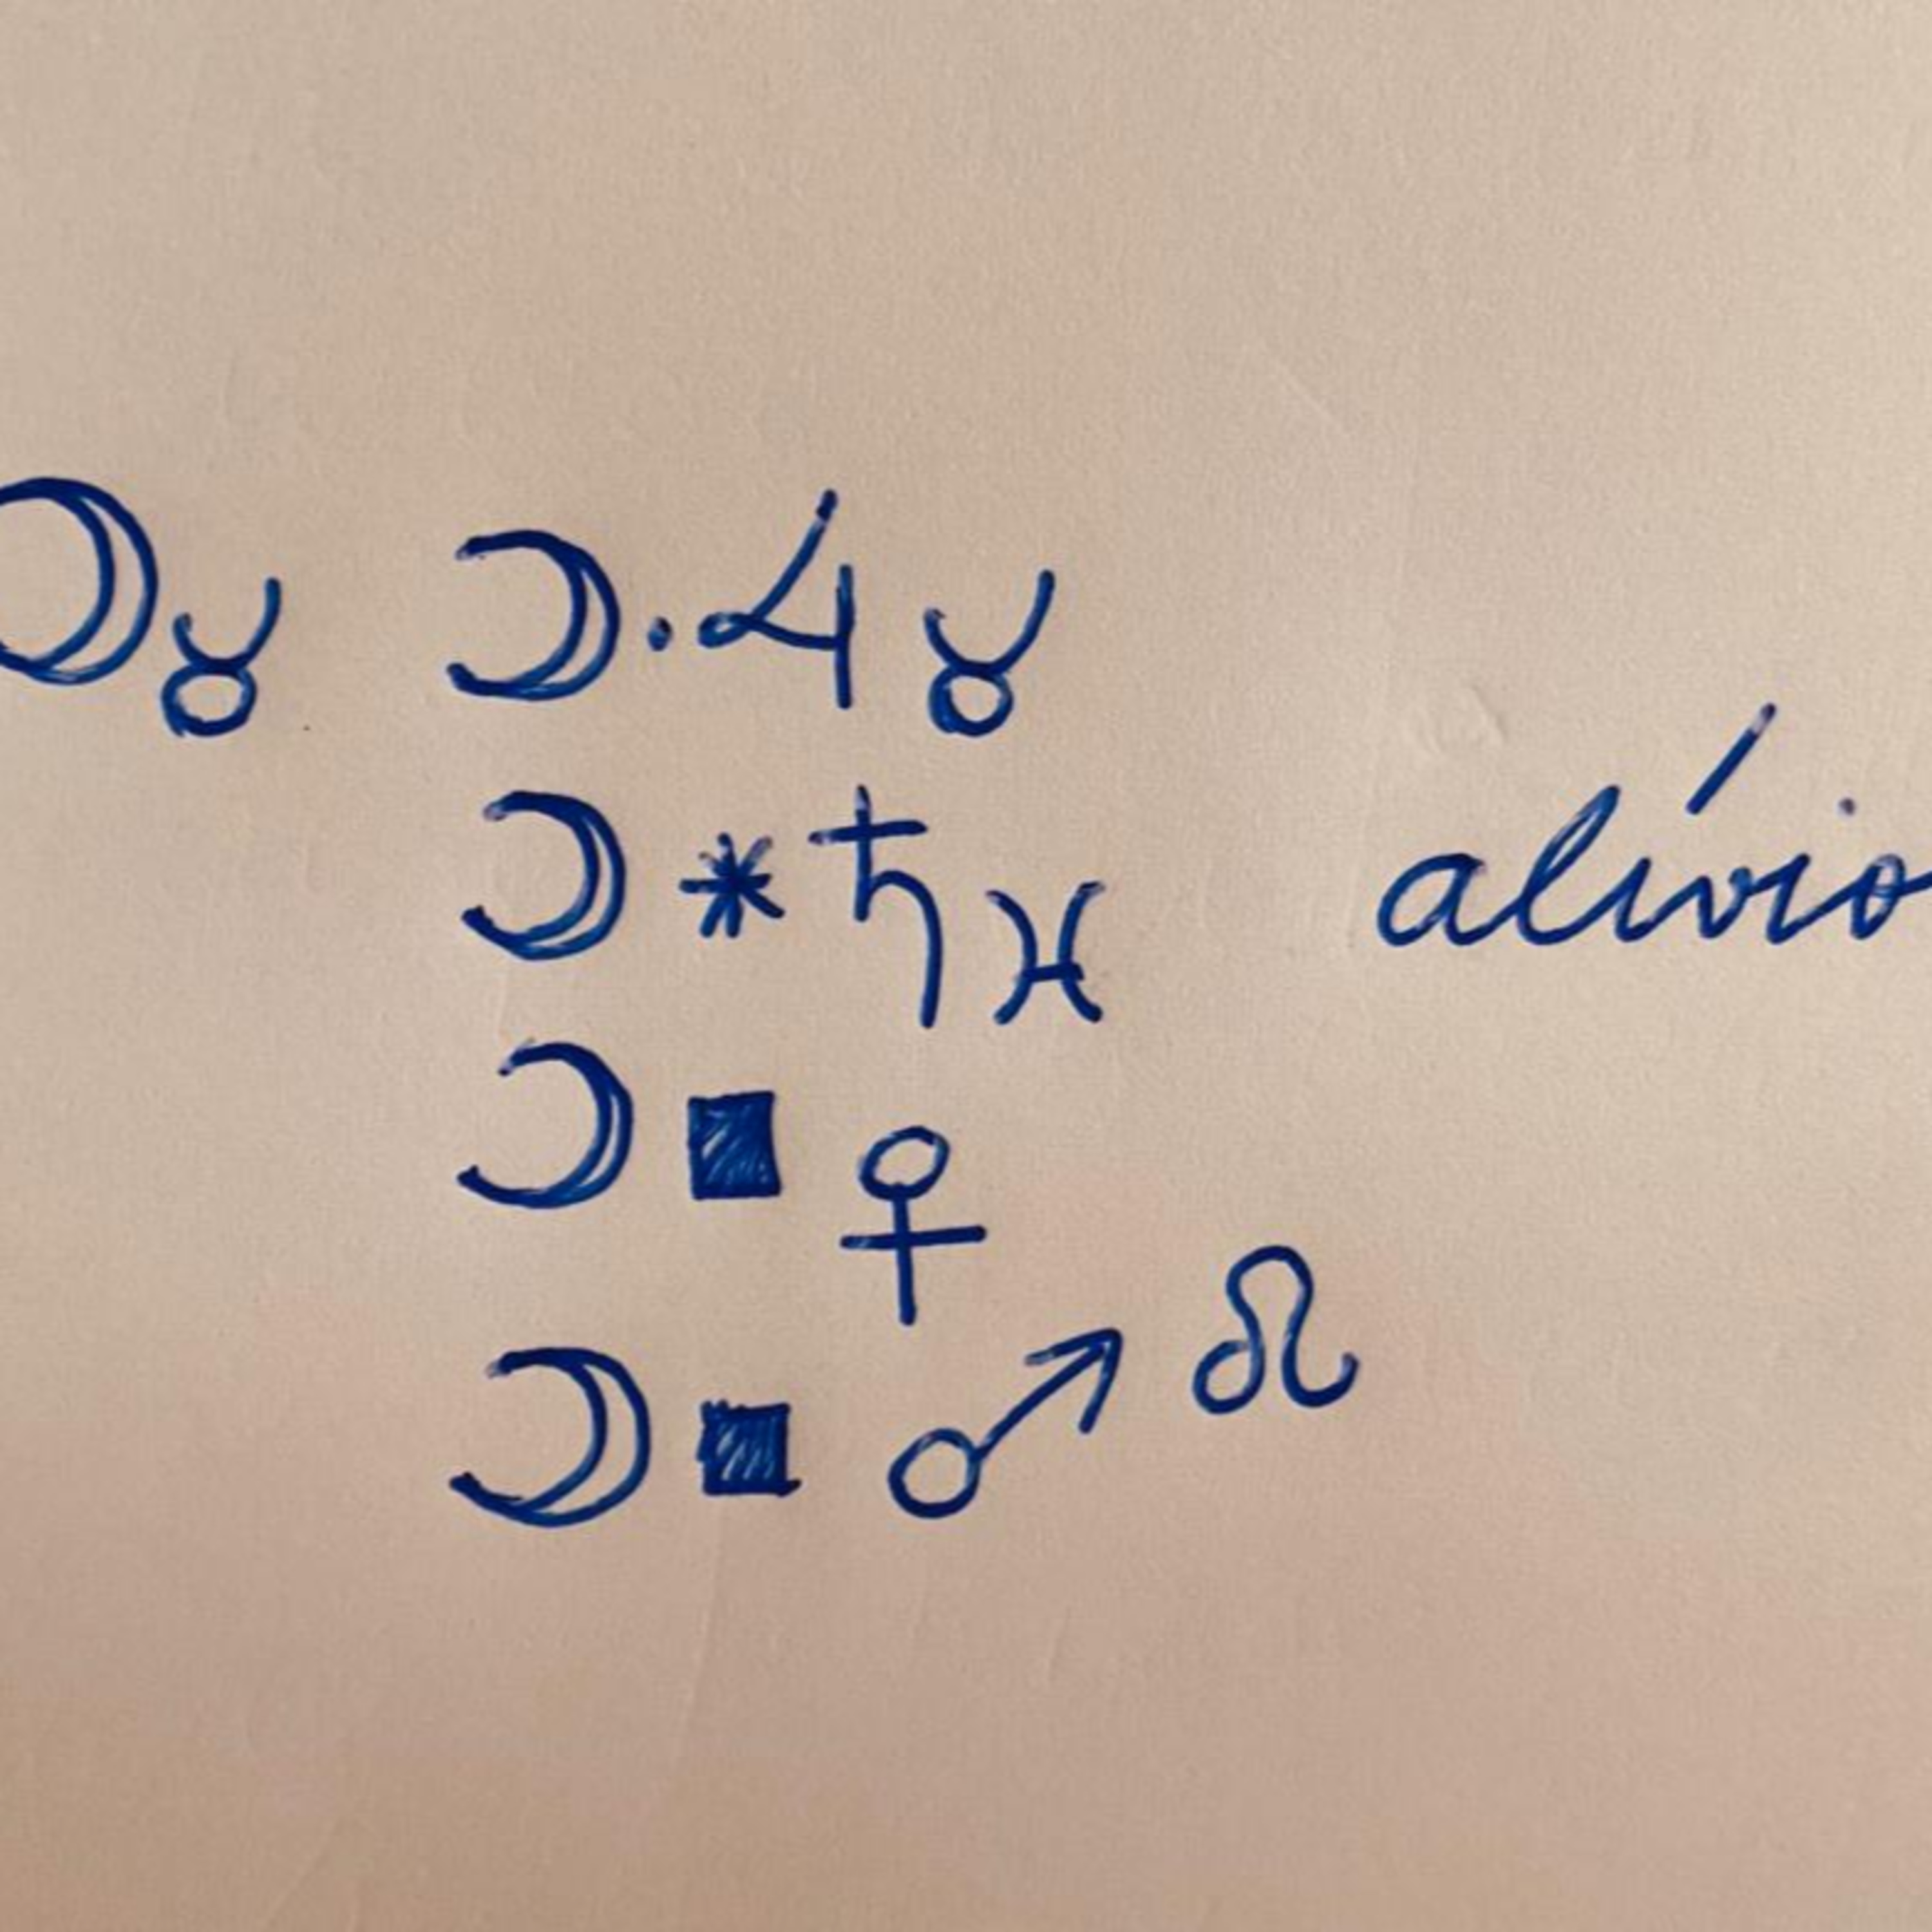 ☽♉ ☽·♃♉
☽✶♄♓
alívio
☽■♀
☽■♂♌